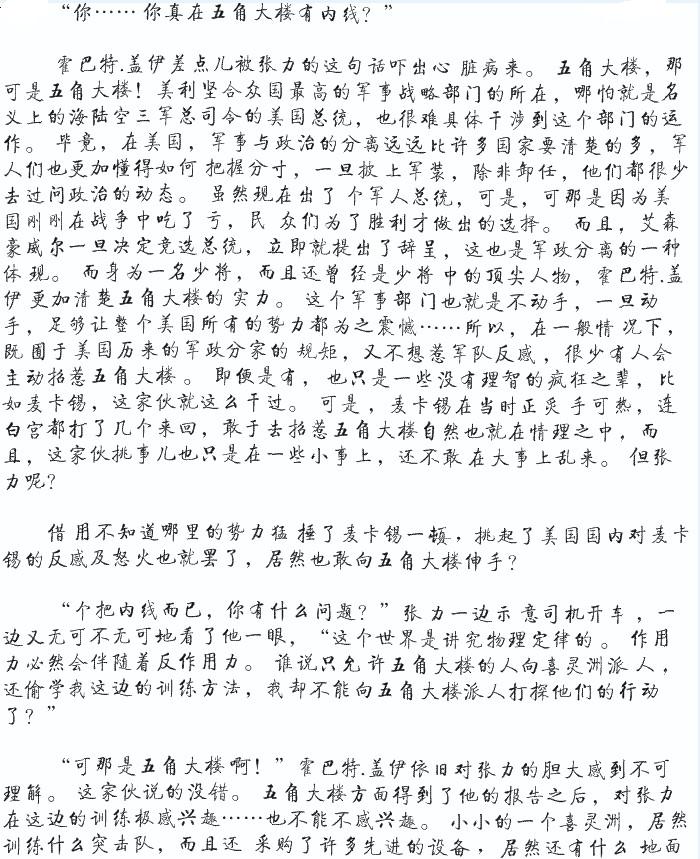 “你…… 你真在五角大楼有内线？”
霍巴特.盖伊差点儿被张力的这句话吓出心 脏病来。 五角大楼，那
可是五角大楼！美利坚合众国最高的军事战略部门的所在，哪怕就是名
义上的海陆空三军总司令的美国总统，也很难具体干涉到这个部门的运
作。 毕竟，在美国，军事与政治的分离远远比许多国家要清楚的多，军
人们也更加懂得如何 把握分寸，一旦披 上军装，除非卸任，他们都很少
去过问政治的动态。 虽然现在出了 个军人总统，可是，可那是因为美
国刚刚在战争中吃了 亏，民 众们为了胜利才做出的选择。 而且，艾森
豪威尔一旦决定竞选总统，立即就提出了辞呈，这也是军政分离的一种
体 现。 而身为一名少将，而且还曾 经是少将 中的顶尖人物， 霍巴特.盖
伊 更加清楚五角大楼的 实力。 这个军事部 门也就是不动手，一旦动
手，足够让整个美国所有的势力都为之震憾……所以，在一般情 况下，
既 囿于美国历来的军政分家的 规矩，又不想惹军队反感 ，很少有人会
主动招惹五角大楼 。 即便是有， 也只是一些没有理智的疯狂之辈，比
如麦卡锡，这家伙就这么干过。 可是 ，麦卡锡在当时正炙 手可热，连
白宫都打了几个来回，敢于去招惹五角大楼自然也就在情理之中，而
且，这家伙挑事儿也只是在一些小事上，还不敢在大事上乱来。 但张
力呢？
借 用不知道哪里的势力猛 捶了麦卡锡一顿，挑起了美国国内对麦卡
锡的反感及怒火也就罢了，居然也敢向五角大楼伸手？
“个把内线而已，你有什么问题？”张 力一边示 意司机开车 ，一
边又无可不无可地看了他一眼，“这个世界是讲究物理定律的 。 作用
力必然会伴随着反作用力。 谁说只允 许五角大楼的人向喜灵洲派 人，
还偷学我这边的训练方法，我却不能向五角大楼派人打探他们的行动
了？”
“可那是五角大楼啊！”霍巴特.盖伊依旧对张力的胆大感到不可
理解。 这家伙说的没错。 五角大楼方面得到了他的报告之后，对张力
在这边的训练极感兴趣……也不能不感兴趣。 小小的一个喜灵洲，居然
训练什么突击队，而且还 采购了许多先进的设备，居然还有什么 地面